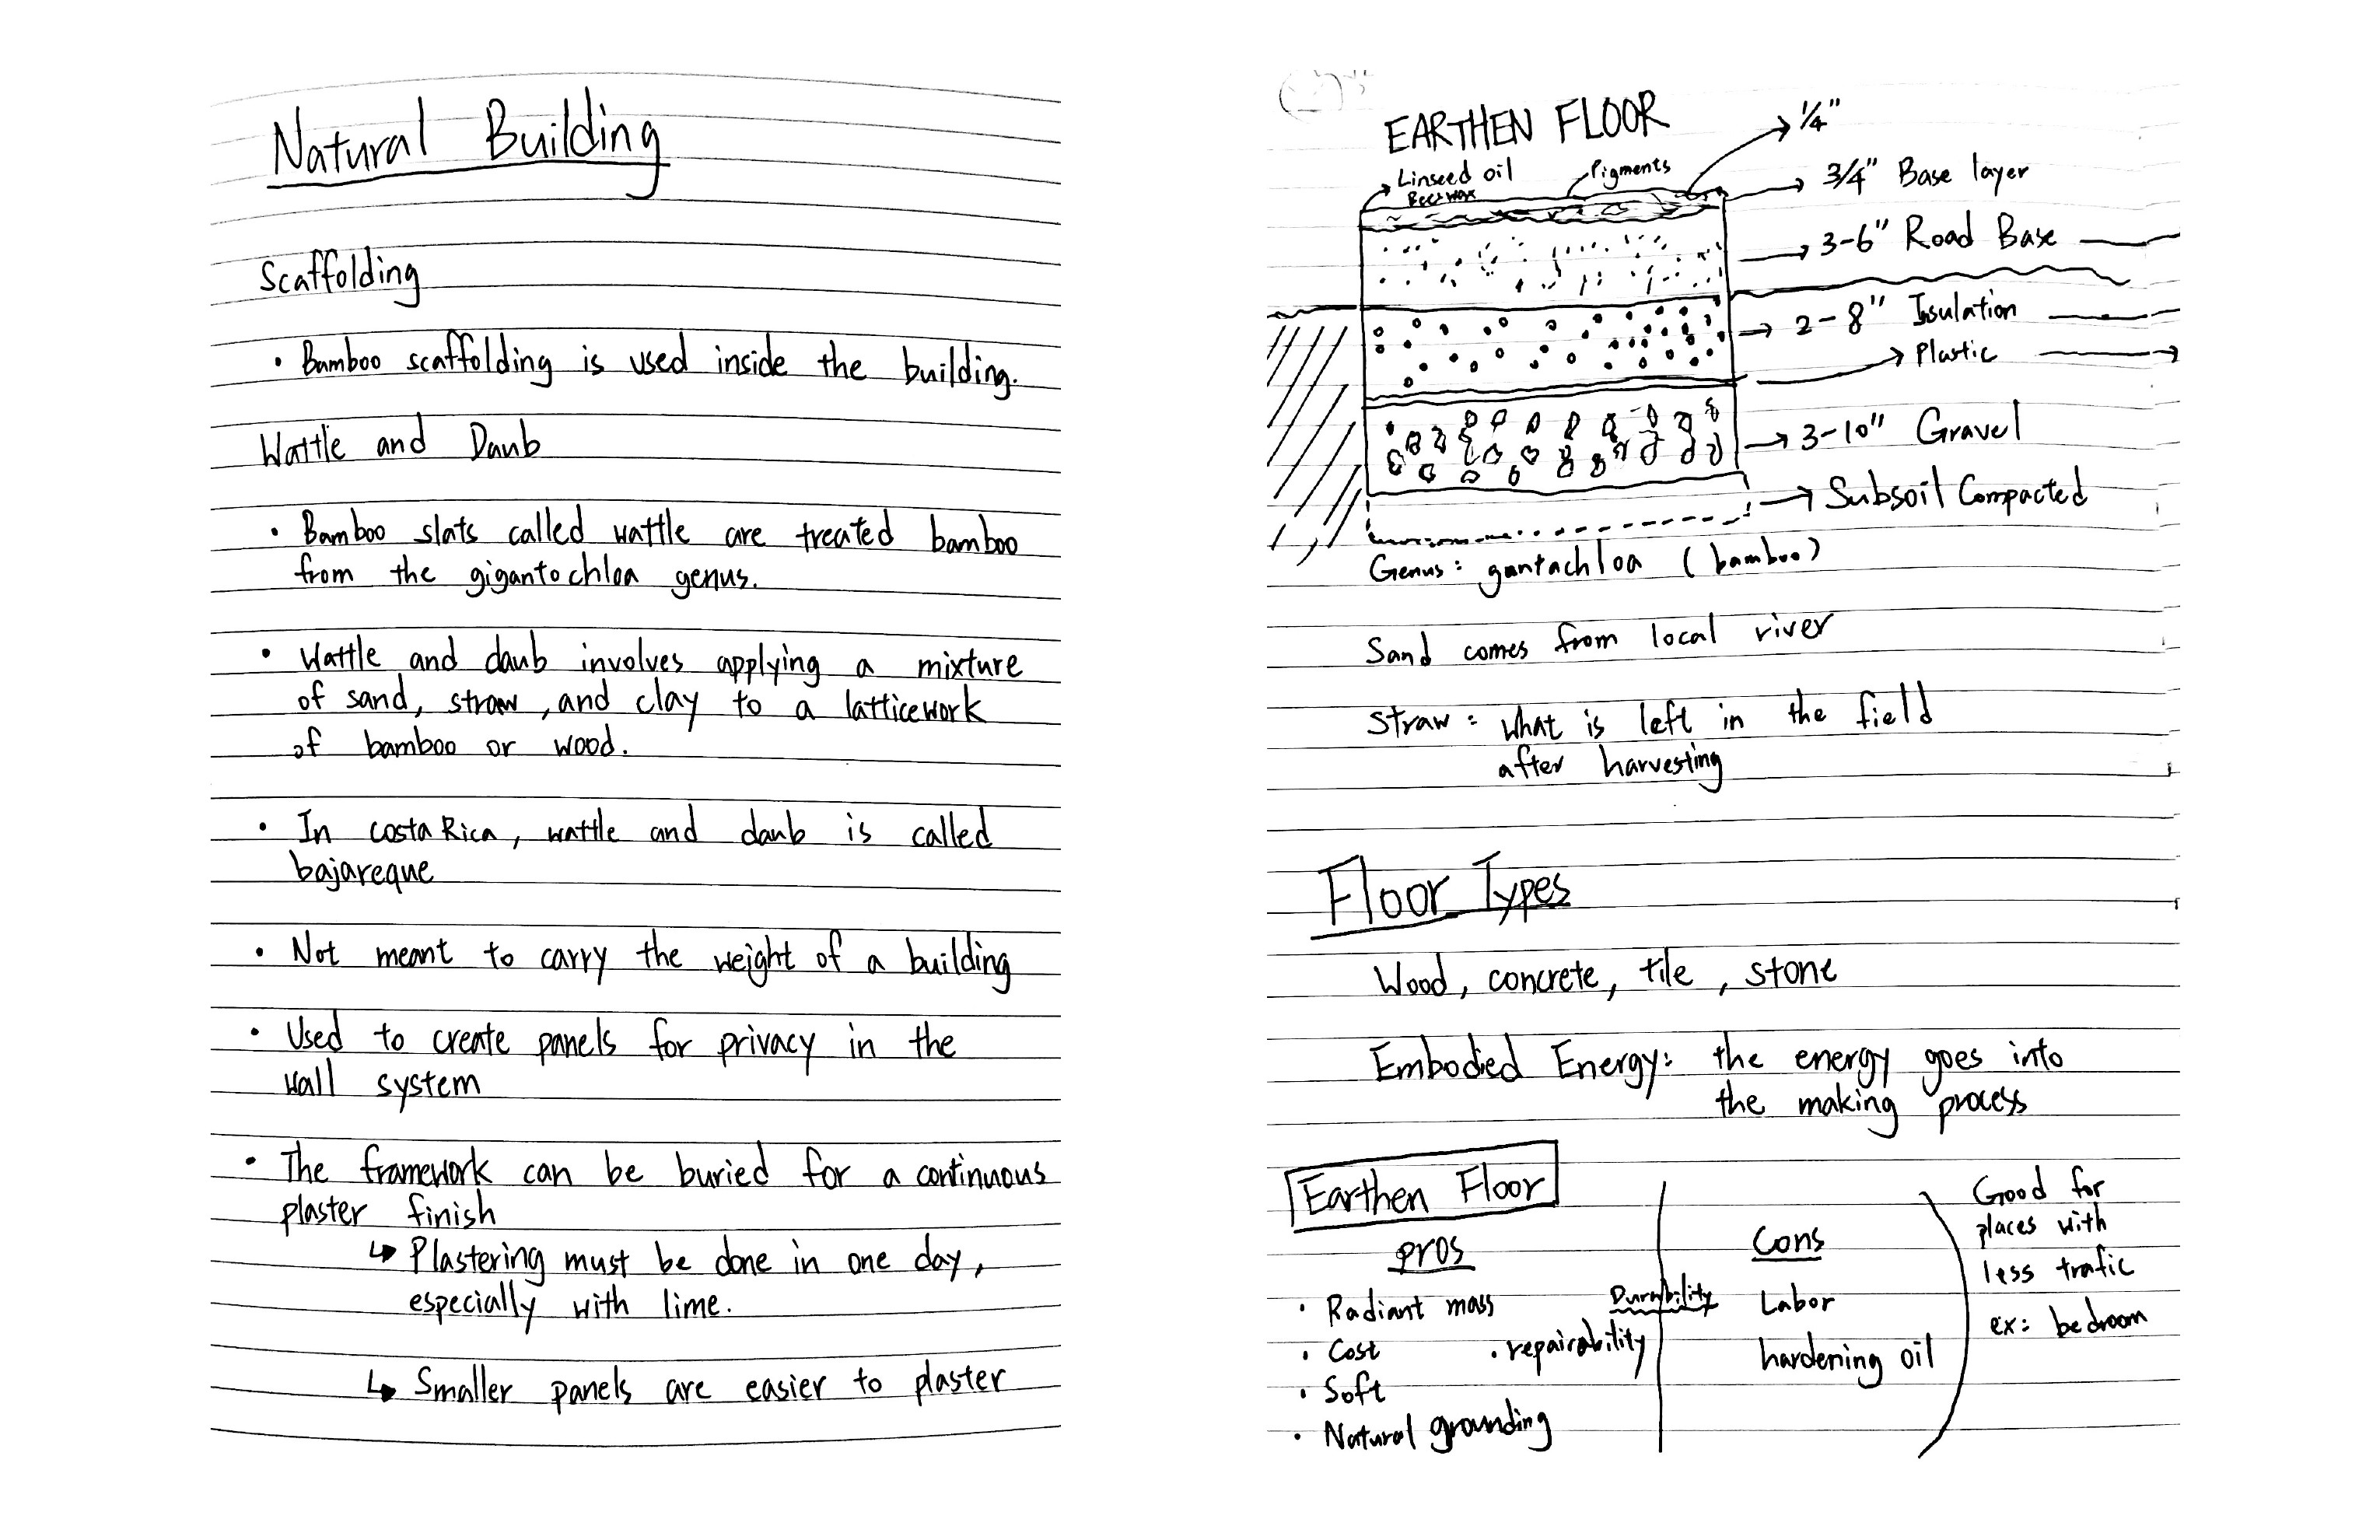 Natural Building
Scaffolding
• Bamboo scaffolding is used inside the building.
Wattle and Daub
• Bamboo slats called wattle are treated bamboo
from the gigantochloa genus.
• Wattle and daub involves applying a mixture
of sand, straw, and clay to a latticework
of bamboo or wood.
• In costa Rica, wattle and daub is called
bajareque
• Not meant to carry the weight of a building
• Used to create panels for privacy in the
wall system
• The framework can be buried for a continuous
plaster finish
↳ Plastering must be done in one day,
especially with lime.
↳ Smaller panels are easier to plaster
EARTHEN FLOOR
1/4"
Linseed oil
Beeswax
Pigments
3/4" Base layer
3-6" Road Base
2-8" Insulation
Plastic
3-10" Gravel
Subsoil Compacted
Genus: gantachloa (bamboo)
Sand comes from local river
Straw: what is left in the field
after harvesting
Floor Types
Wood, concrete, tile, stone
Embodied Energy: the energy goes into
the making process
Earthen Floor
pros
• Radiant mass
• Cost
• repairability
• Soft
• Natural grounding
Durability
Cons
Labor
hardening oil
Good for
places with
less trafic
ex: bedroom